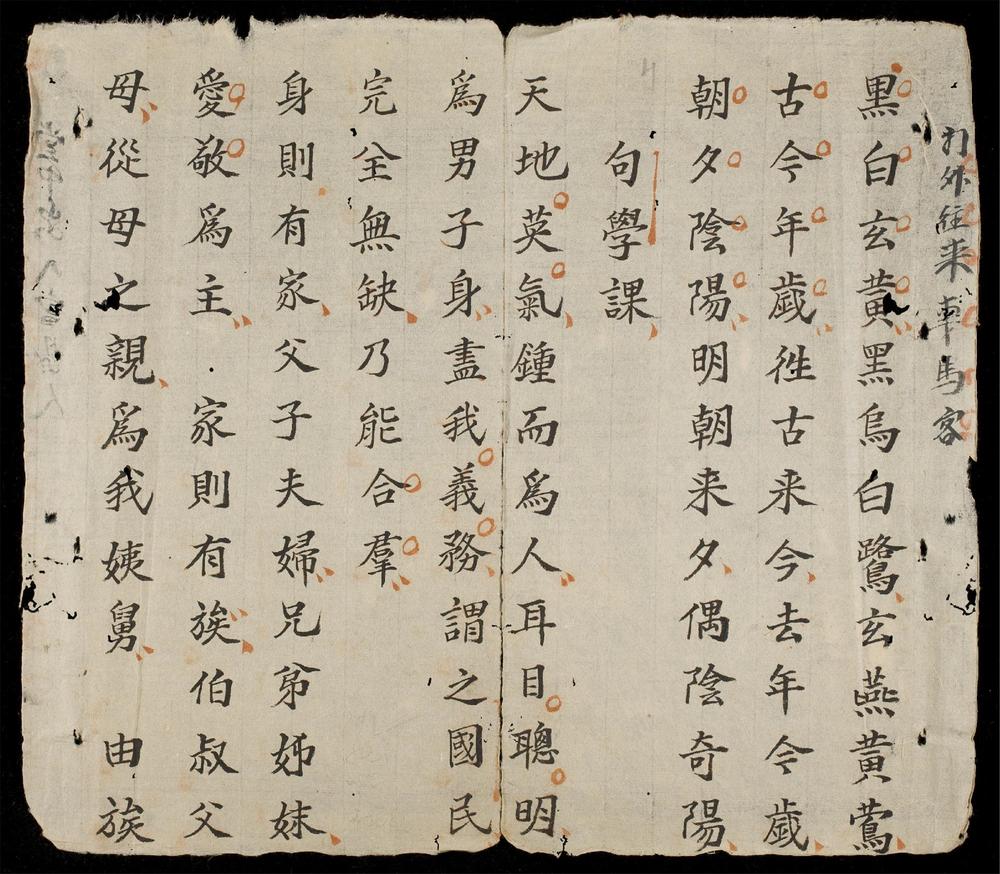 打外往来車馬客
黒白玄黃黑烏白鷺玄燕黃鶯
古今年歲徃古来今去年今歲
朝夕陰陽明朝来夕偶陰奇陽
句學課
天地英氣鍾而爲人耳目聰明
爲男子身盡我義務謂之國民
完全無缺乃能合羣
身則有家父子夫婦兄弟姊妹
愛敬爲主家則有族伯叔父
母從母之親爲我姨舅由族